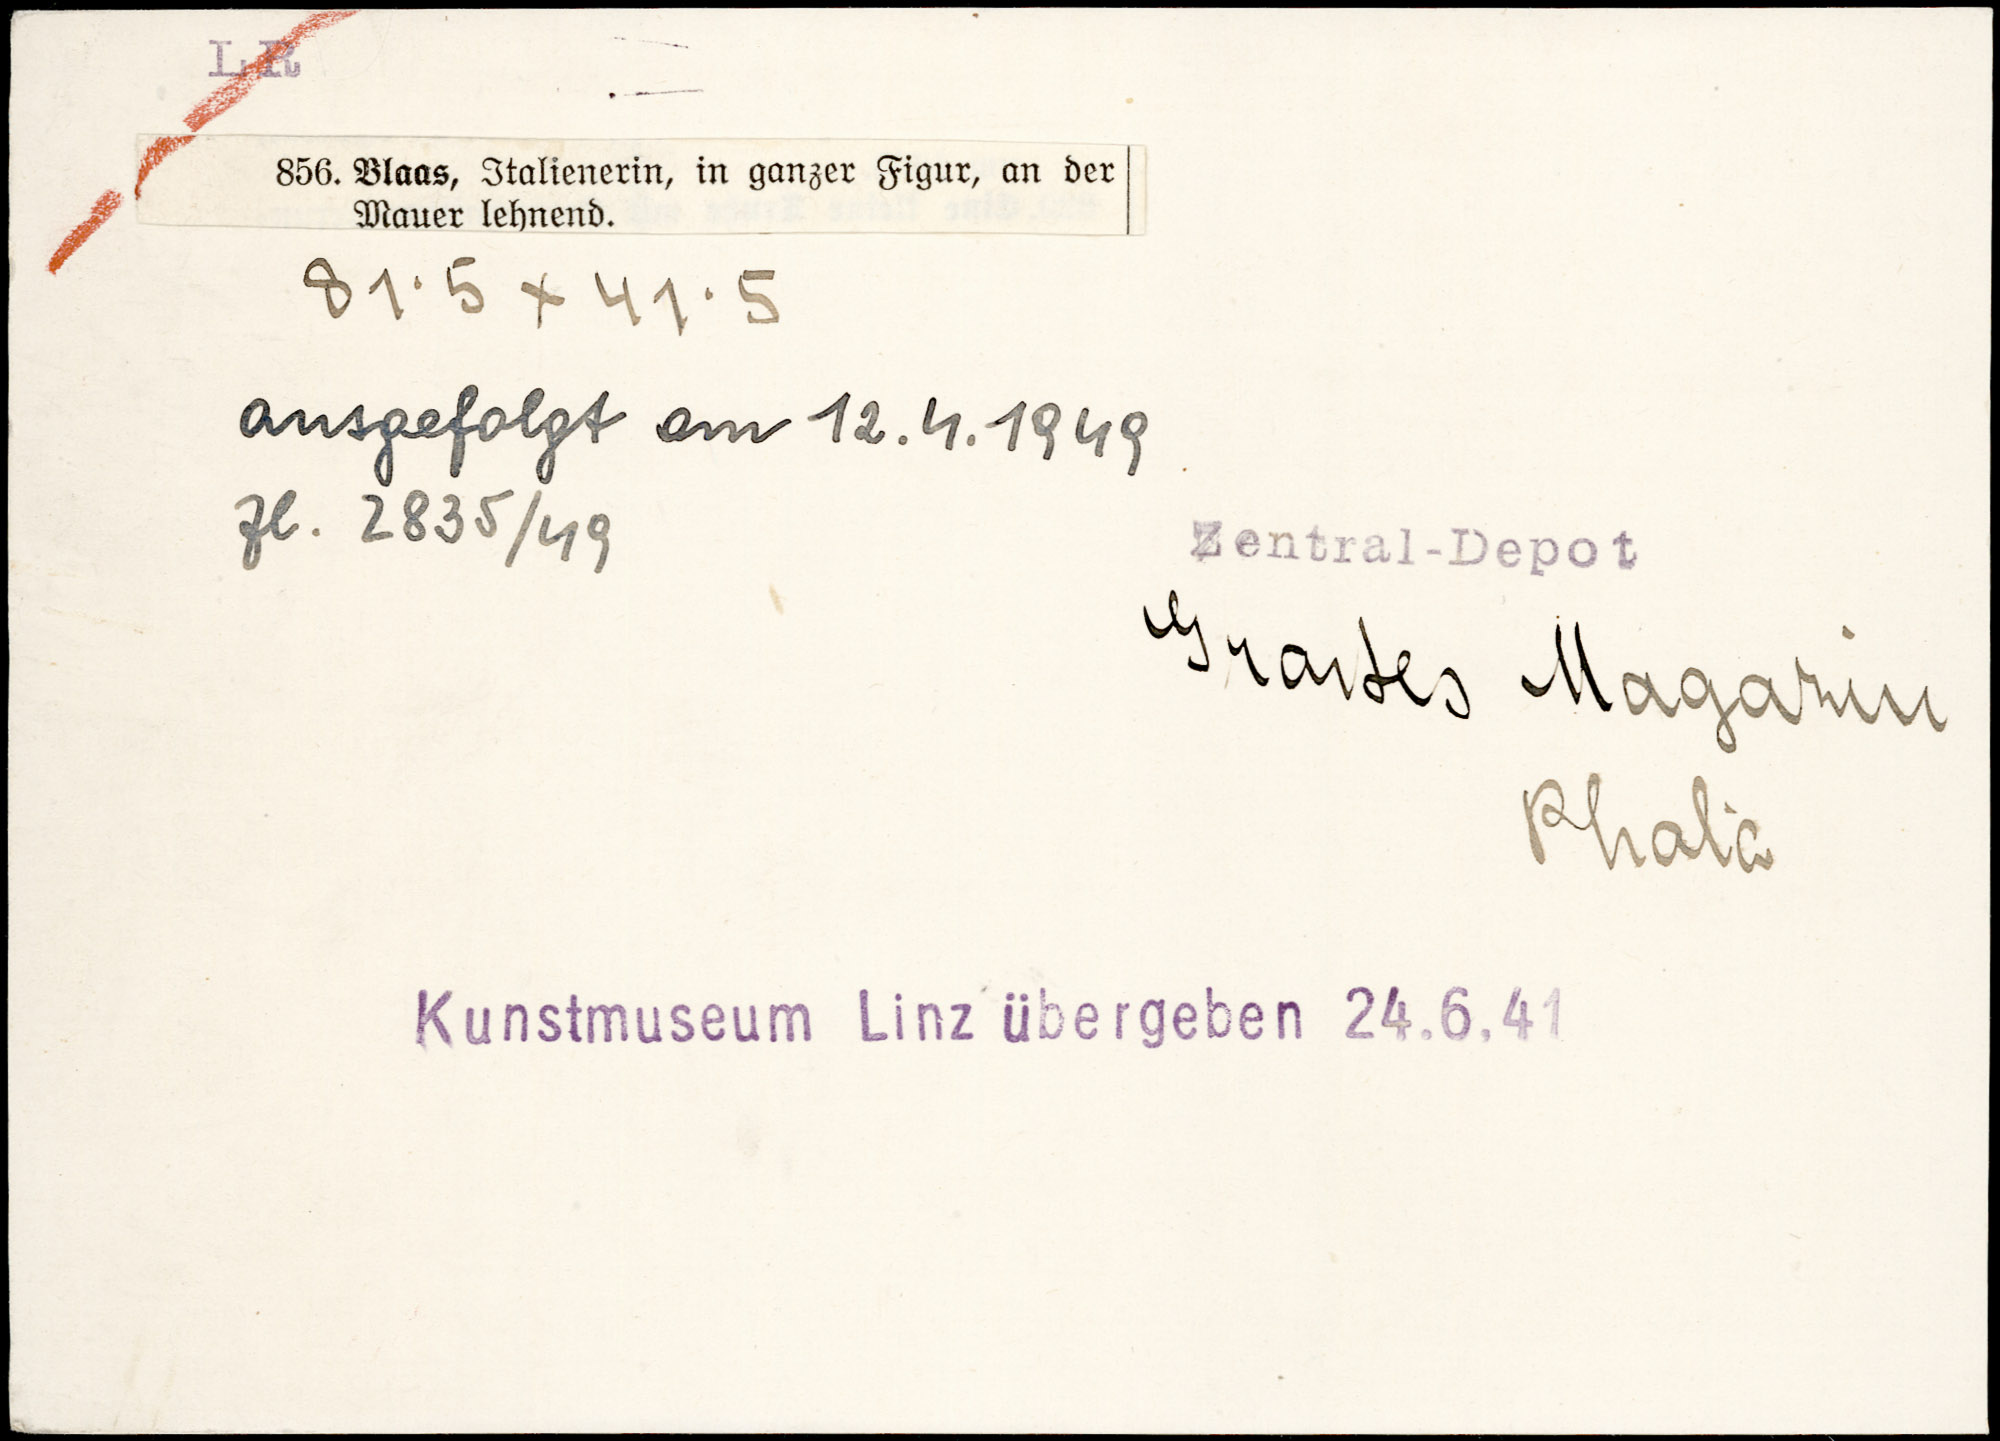 LR
856. Blaas, Italienerin, in ganzer Figur, an der
Mauer lehnend.
81·5 x 41·5
ausgefolgt am 12.4.1949
Zl. 2835/49
Zentral-Depot
Magazin
Kunstmuseum Linz übergeben 24.6.41